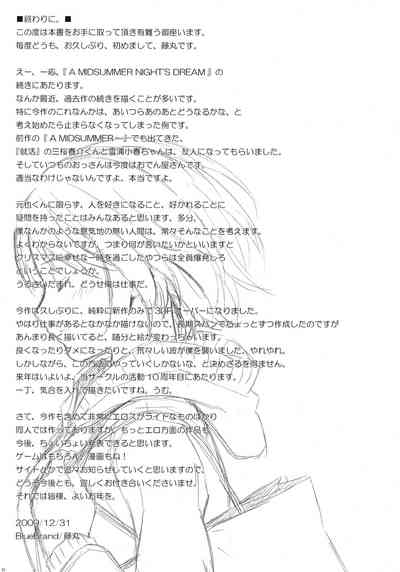 ■終わりに。■
この度は本書をお手に取って頂き有難う御座います。
毎度どうも、お久しぶり、初めまして、藤丸です。
えー、一応、『A MIDSUMMER NIGHT'S DREAM』の
続きにあたります。
なんか最近、過去作の続きを描くことが多いです。
特に今作のこれなんかは、あいつらあのあとどうなるかな、と
考え始めたら止まらなくなってしまった例です。
前作の『A MIDSUMMER～』でも出てきた、
『就活』の三桜春介くんと雪浦小春ちゃんは、友人になってもらいました。
そしていつものおっさんは今度はおでん屋さんです。
適当なわけじゃないんですよ、本当ですよ。
元也くんに限らず、人を好きになること、好かれることに
疑問を持ったことはみんなあると思います、多分。
僕なんかのような意気地の無い人間は、常々そんなことを考えます。
よくわからないですが、つまり何が言いたいかといいますと
クリスマスに幸せな一時を過ごしたやつらは全員爆発しろ
ということでしょうか。
うるさいだまれ。どうせ俺は仕事だ。
今作は久しぶりに、純粋に新作のみで30Pオーバーになりました。
やはり仕事があるとなかなか描けないので、長期スパンでちょっとずつ作成したのですが
あんまり長く描いてると、随分と絵が変わっちゃいます。
良くなったりダメになったりと、荒々しい波が僕を襲いました、やれやれ。
しかしながら、この方法でやっていくしかないな、と決めざるを得ません。
来年はいよいよ、当サークルの活動10周年目にあたります。
一丁、気合を入れて描きたいですね、うむ。
さて、今作も含めて非常にエロスがライトなものばかり
同人では作ってますが、もっとエロ方面の作品も
今後、ちょいちょい発表できると思います。
ゲームはもちろん、漫画もね！
サイトとかで追々お知らせしていくと思いますので、
どうぞ今後とも、宜しくお付き合いくださいませ。
それでは皆様、よいお年を。
2009/12/31
BlueBrand/藤丸